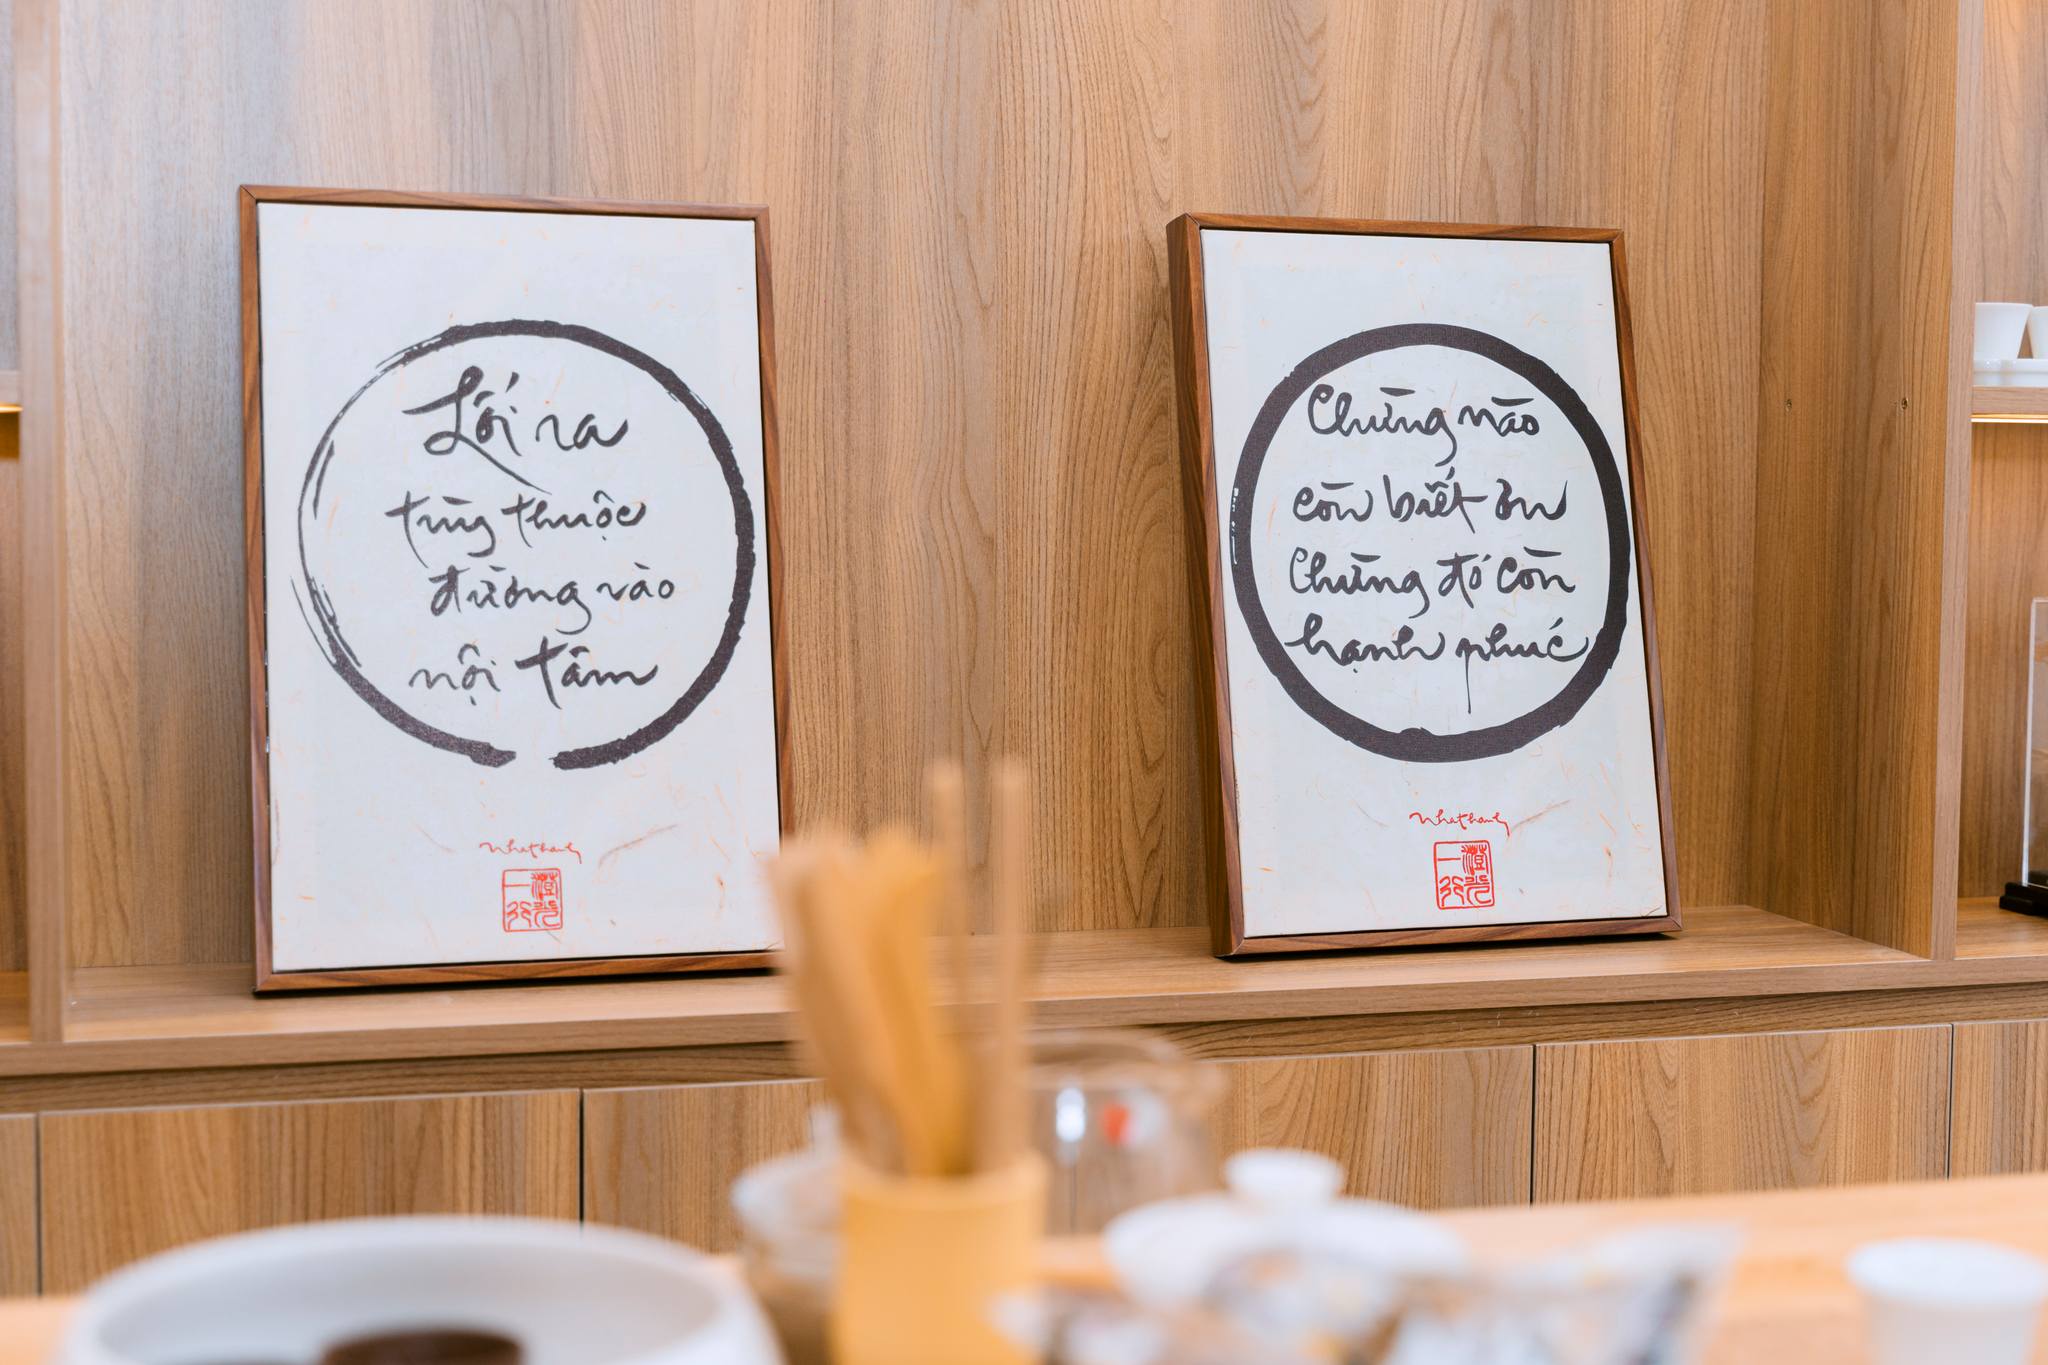 Lối ra
tùy thuộc
đường vào
nội tâm
nhathanh
一行
澄光
Chừng nào
còn biết ơn
Chừng đó còn
hạnh phúc
nhathanh
一行
澄光